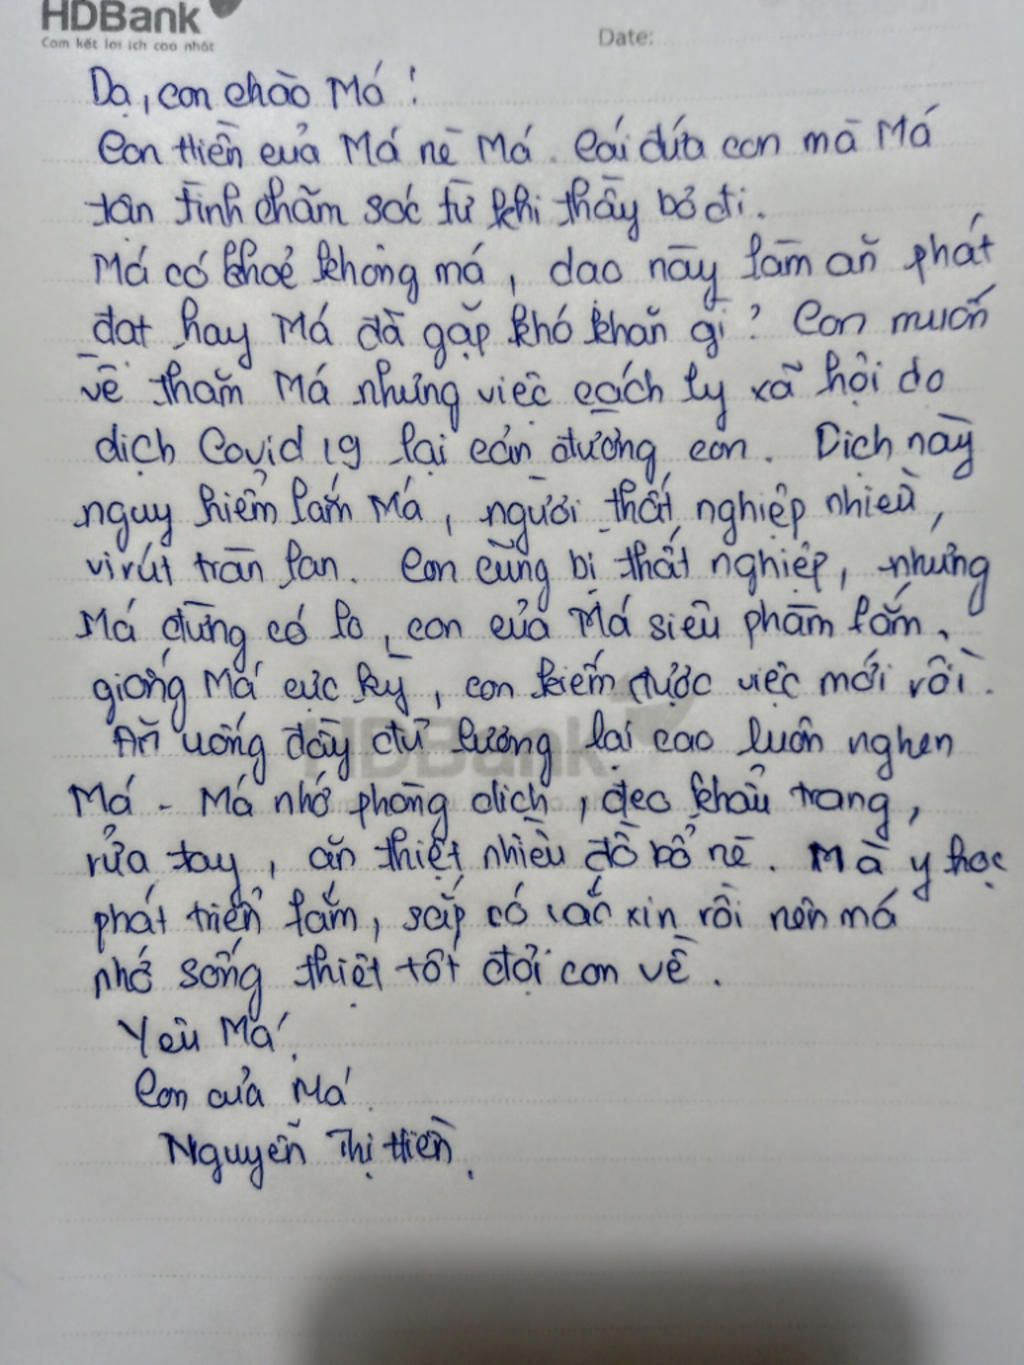 HDBank
Cam kết lợi ích cao nhất
Date:
Dạ, con chào Má!
Con Hiền của Má nè Má. Cái đứa con mà Má
tận tình chăm sóc từ khi thầy bỏ đi.
Má có khoẻ không má, dạo này làm ăn phát
đạt hay Má đã gặp khó khăn gì? Con muốn
về thăm Má nhưng việc cách ly xã hội do
dịch Covid 19 lại cản đường con. Dịch này
nguy hiểm lắm Má, người thất nghiệp nhiều,
virút tràn lan. Con cũng bị thất nghiệp, nhưng
Má đừng có lo, con của Má siêu phàm lắm,
giống Má cực kỳ, con kiếm được việc mới rồi.
Ăn uống đầy đủ lương lại cao luôn nghen
Má - Má nhớ phòng dịch, đeo khẩu trang,
rửa tay, ăn thiệt nhiều đồ bổ nè. Mà y học
phát triển lắm, sắp có vắc xin rồi nên má
nhớ sống thiệt tốt đợi con về.
Yêu Má!
Con của Má.
Nguyễn Thị Hiền.
HDBank